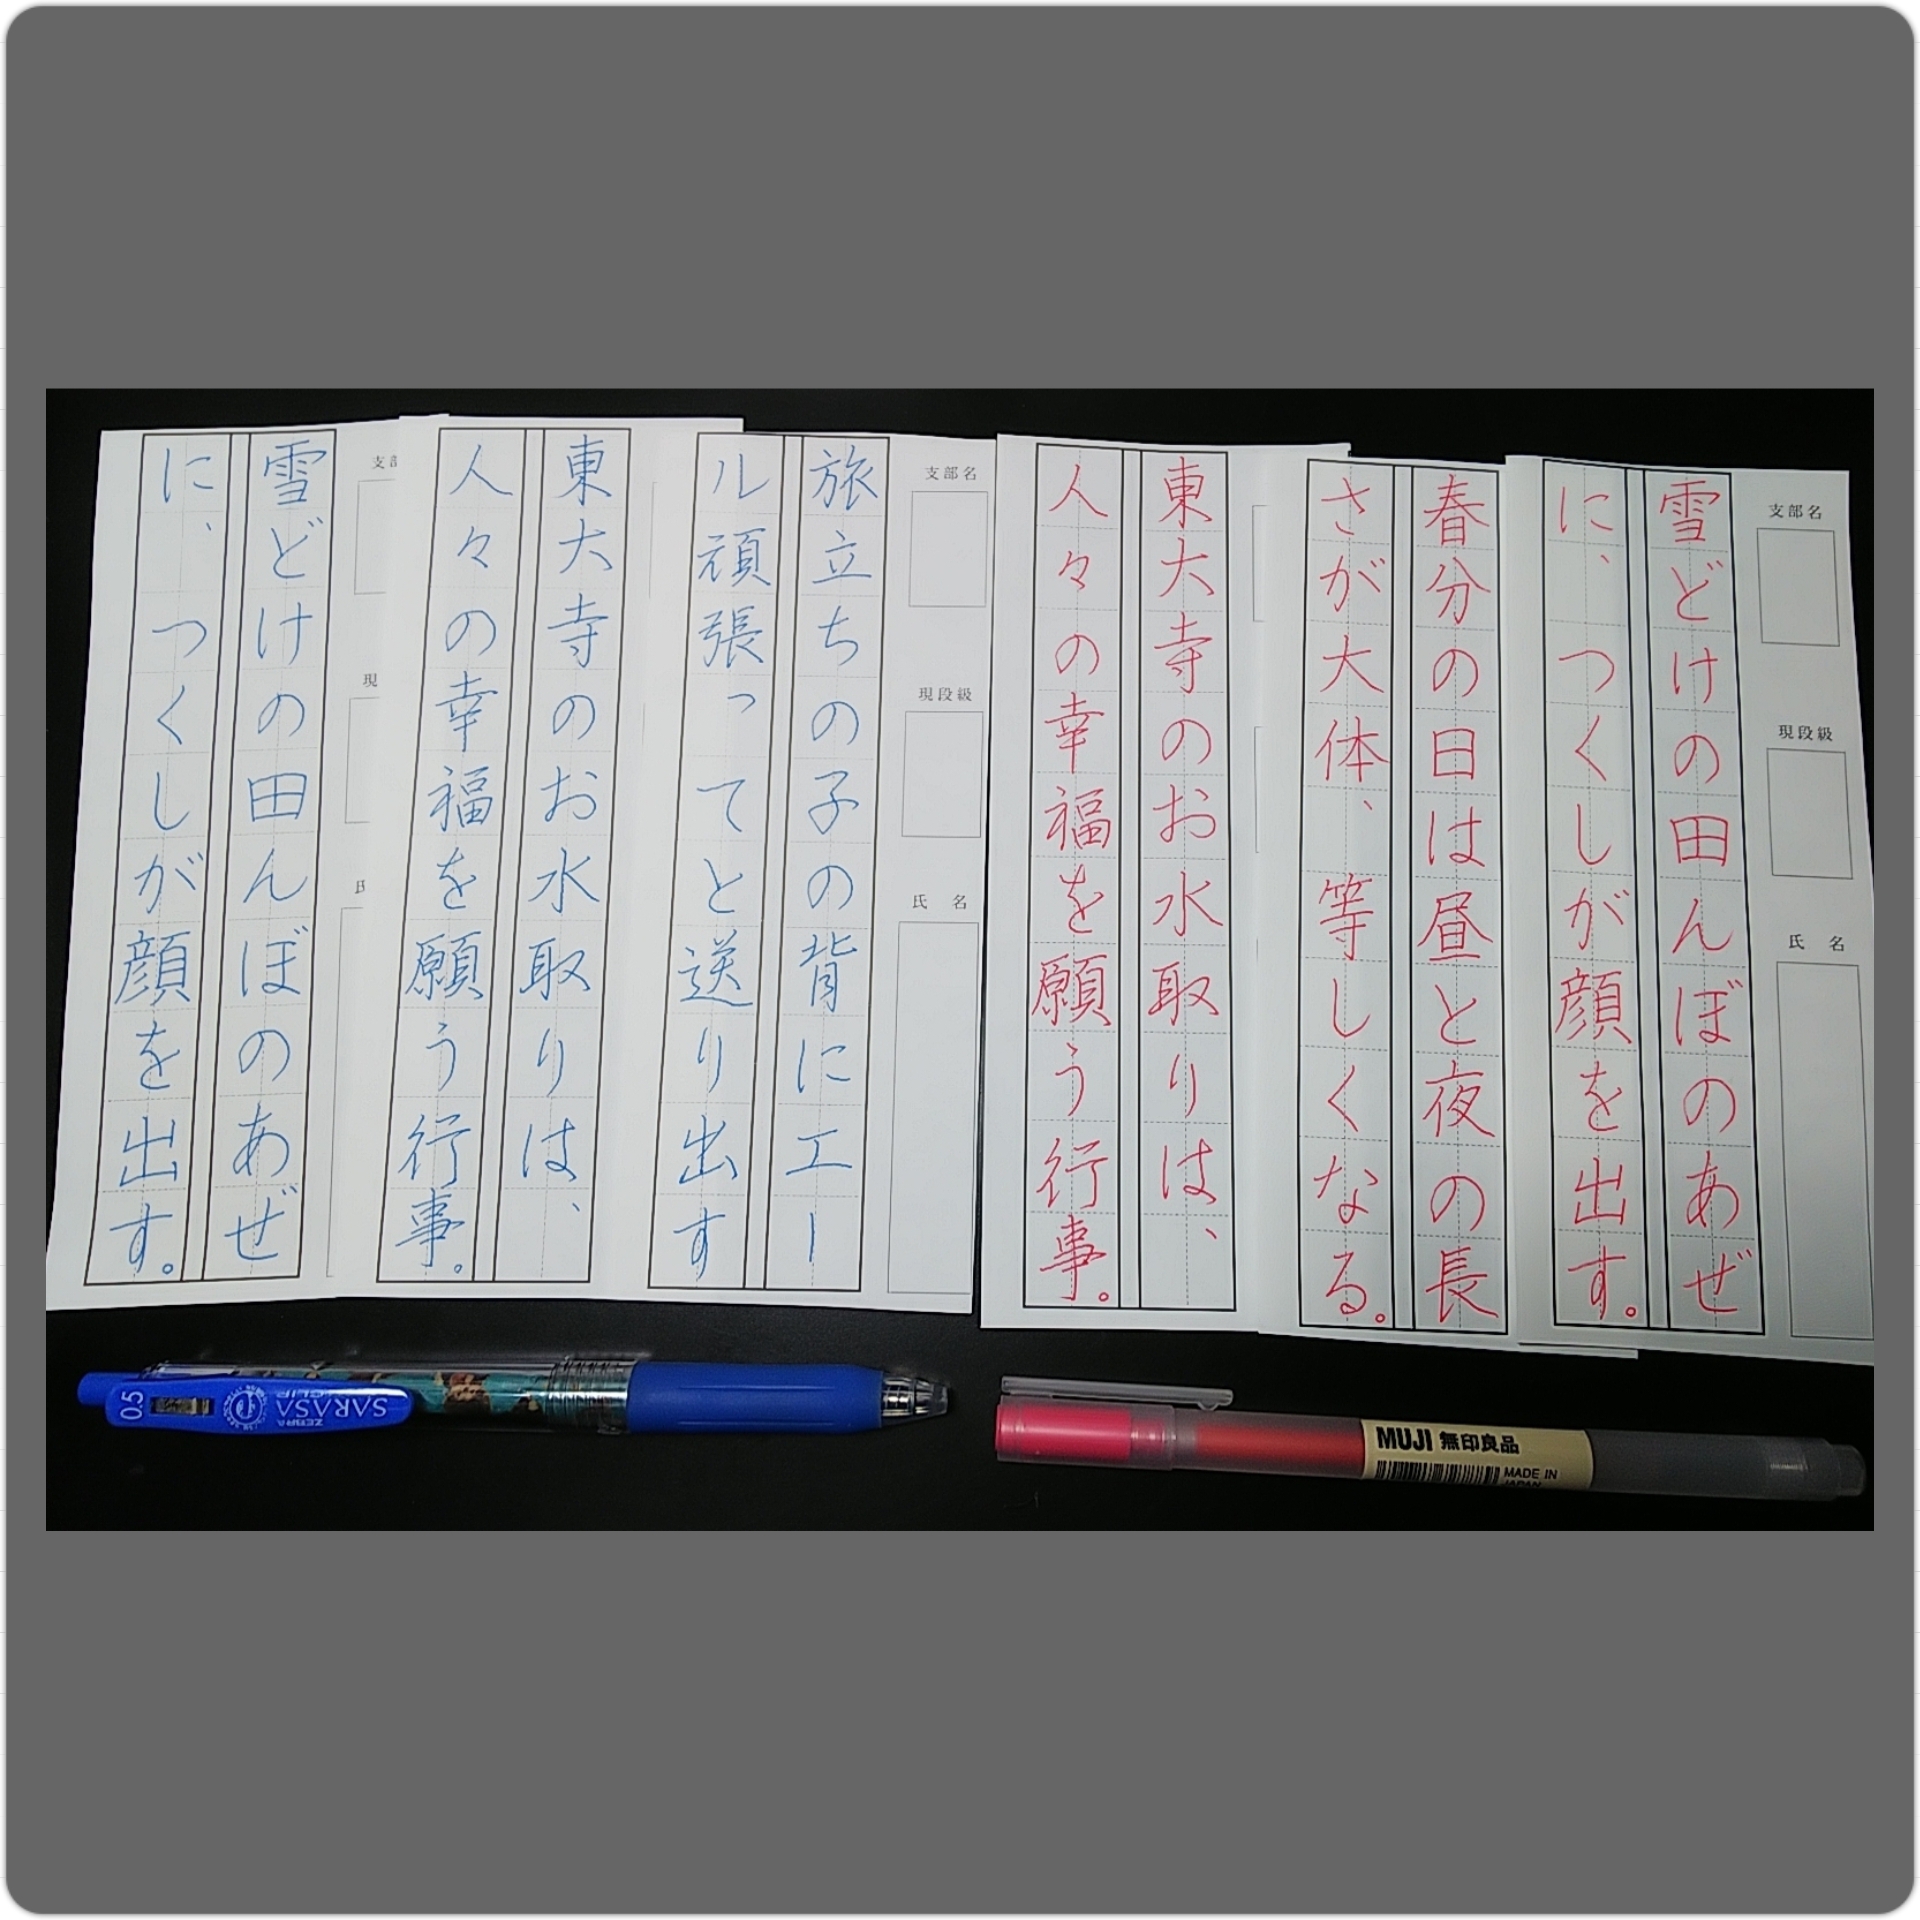 雪どけの田んぼのあぜ
に、つくしが顔を出す。
支部名
現段級
氏名
春分の日は昼と夜の長
さが大体、等しくなる。
東大寺のお水取りは、
人々の幸福を願う行事。
旅立ちの子の背にエー
ル頑張ってと送り出す
支部名
現段級
氏名
東大寺のお水取りは、
人々の幸福を願う行事。
雪どけの田んぼのあぜ
に、つくしが顔を出す。
支部
現
0.5
ZEBRA
SARASA
CLIP
MUJI 無印良品
MADE IN
JAPAN